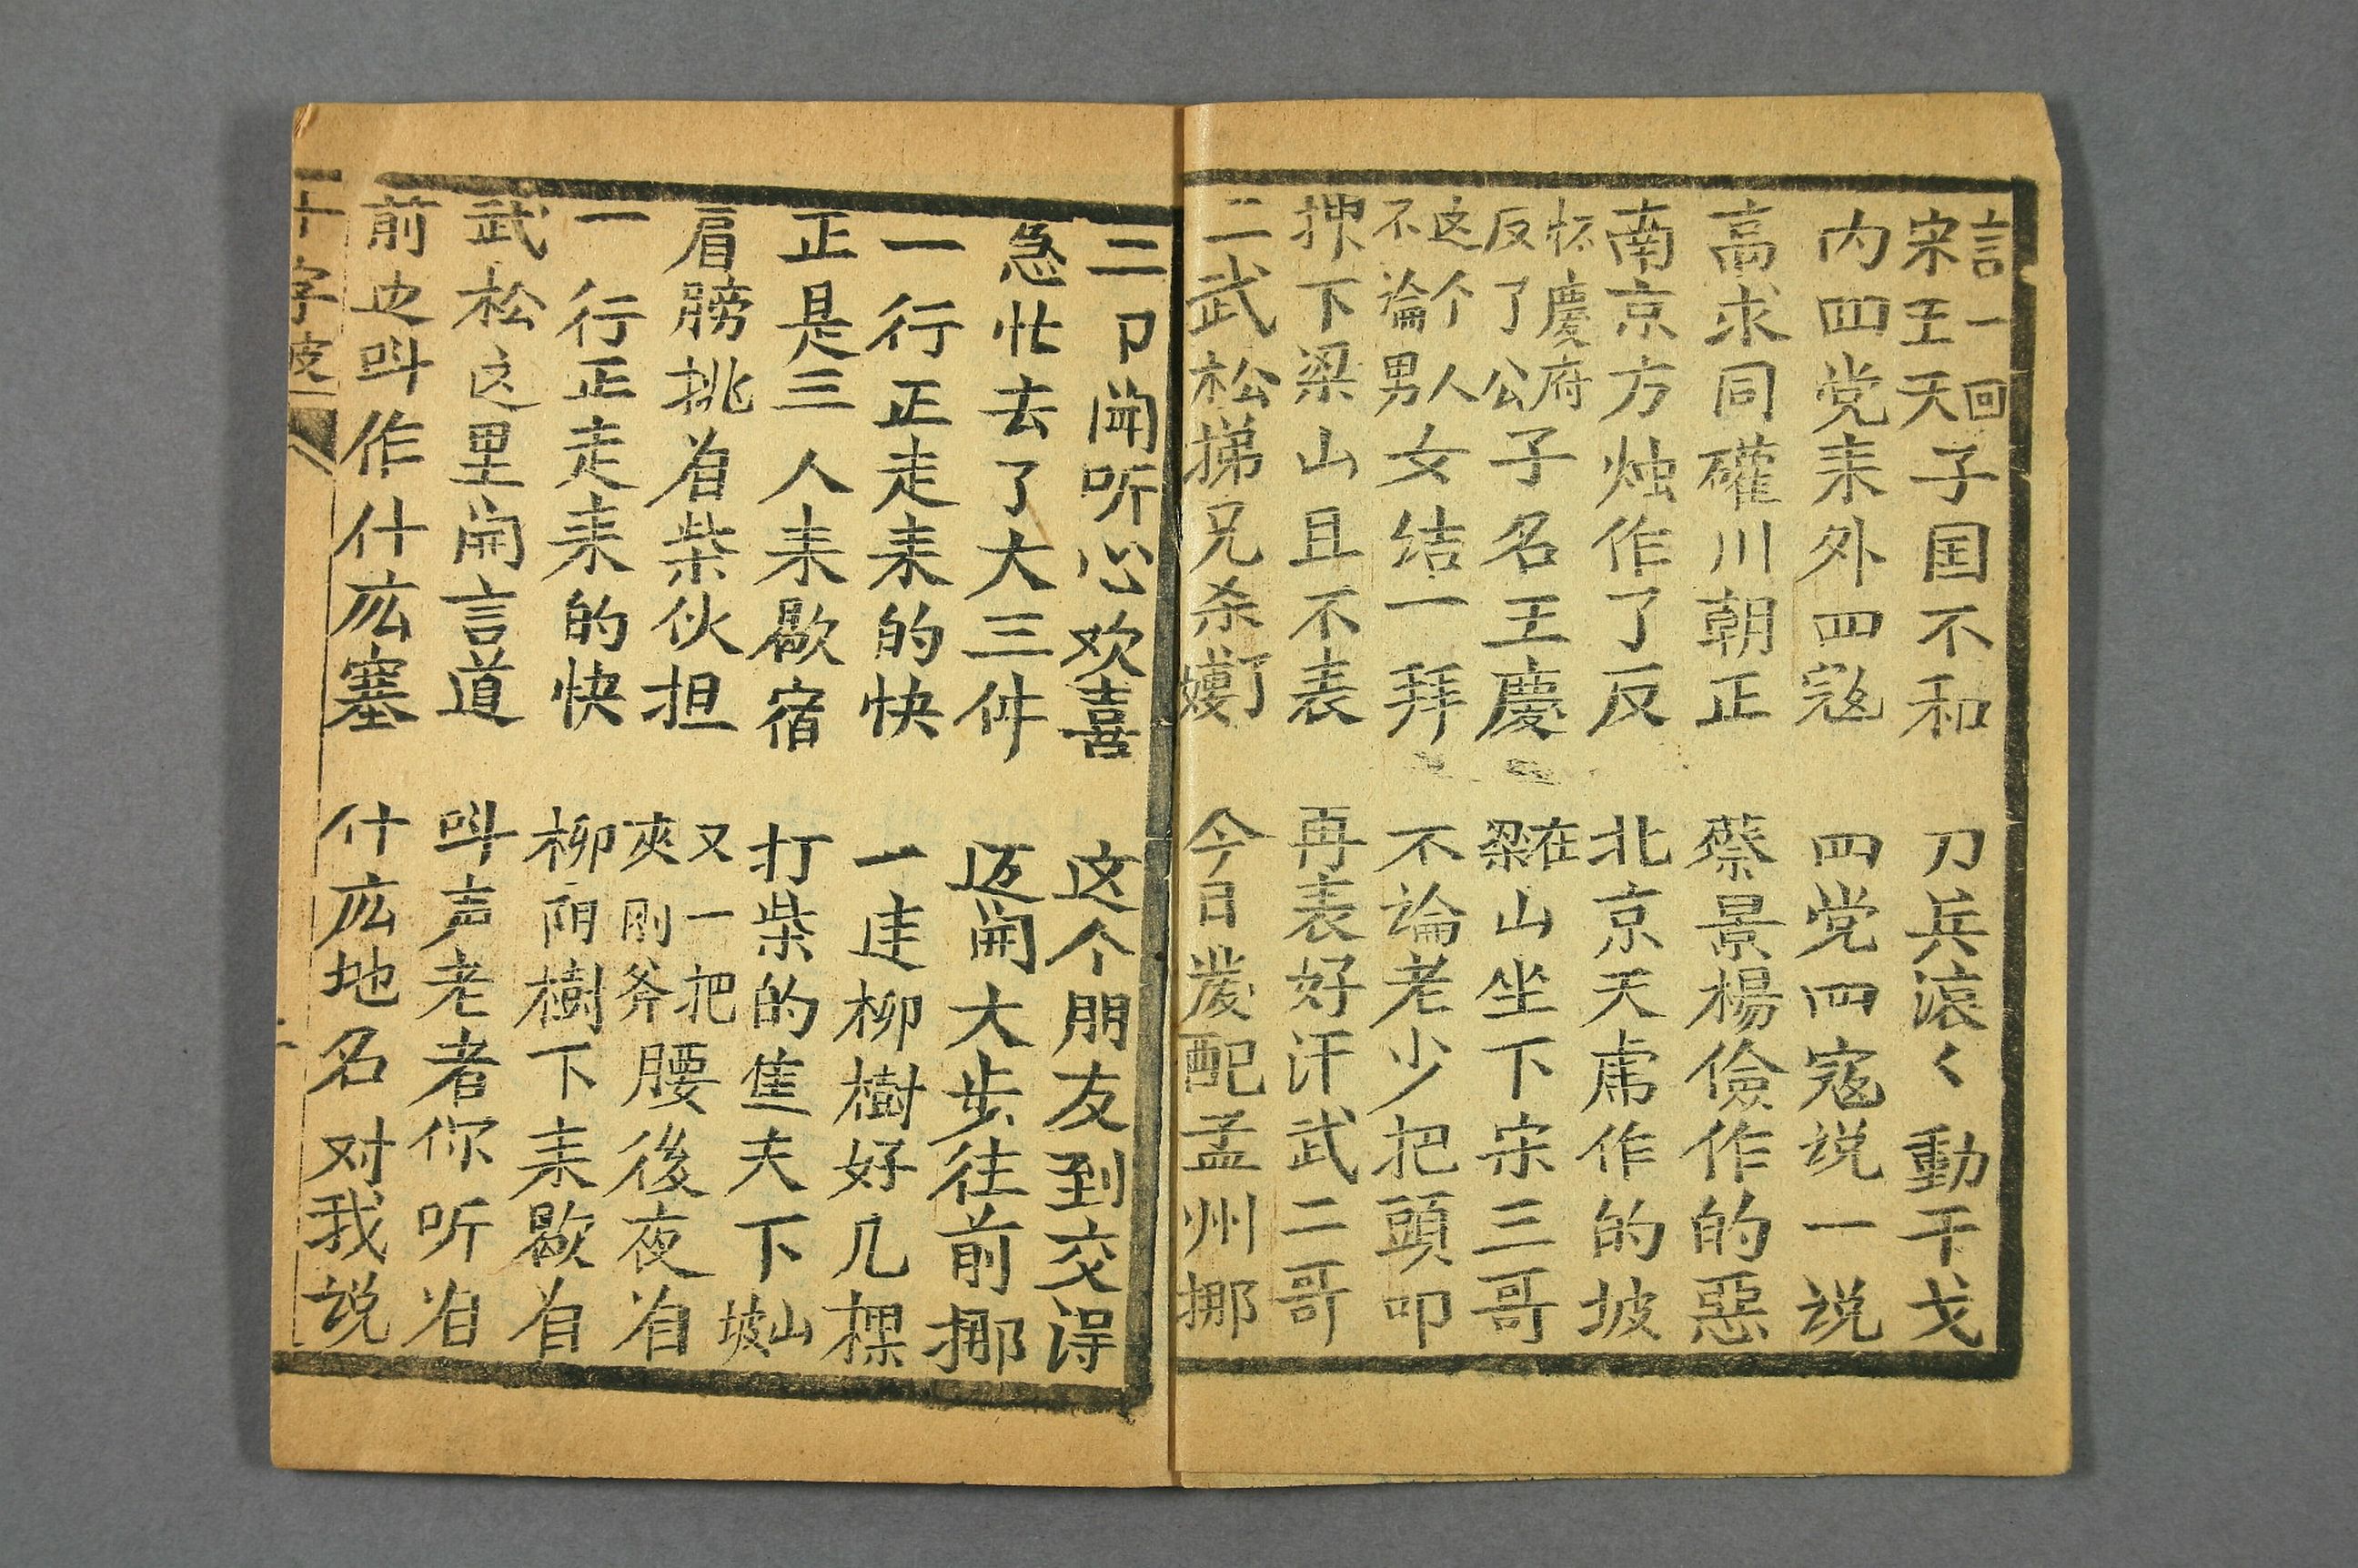 言一回宋王天子国不和 刀兵滚〱動干戈
内四党耒外四寇 四党四寇说一说
高求同𥗫川朝正 蔡景楊儉作的惡
南京方烛作了反 北京天乕作的坡
怀慶府反了公子名王慶 在梁山坐下宋三哥
这个人不論男女结一拜 不论老少把頭叩
押下梁山且不表 再表好汗武二哥
二武松挮兄杀了嫂 今日發配孟州挪
二卩闻听心欢喜 这个朋友到交淂
急忙去了大三件 迈開大步往前挪
一行正走耒的快 一連柳樹好几棵
正是三人耒歇宿 打柴的焦夫下山坡
肩膀挑着柴伙担 又一把夾刚斧腰後夜着
一行正走耒的快 柳阴樹下耒歇着
武松这里開言道 叫声老者你听着
前边叫作什庅塞 什庅地名对我说
十字坡 二